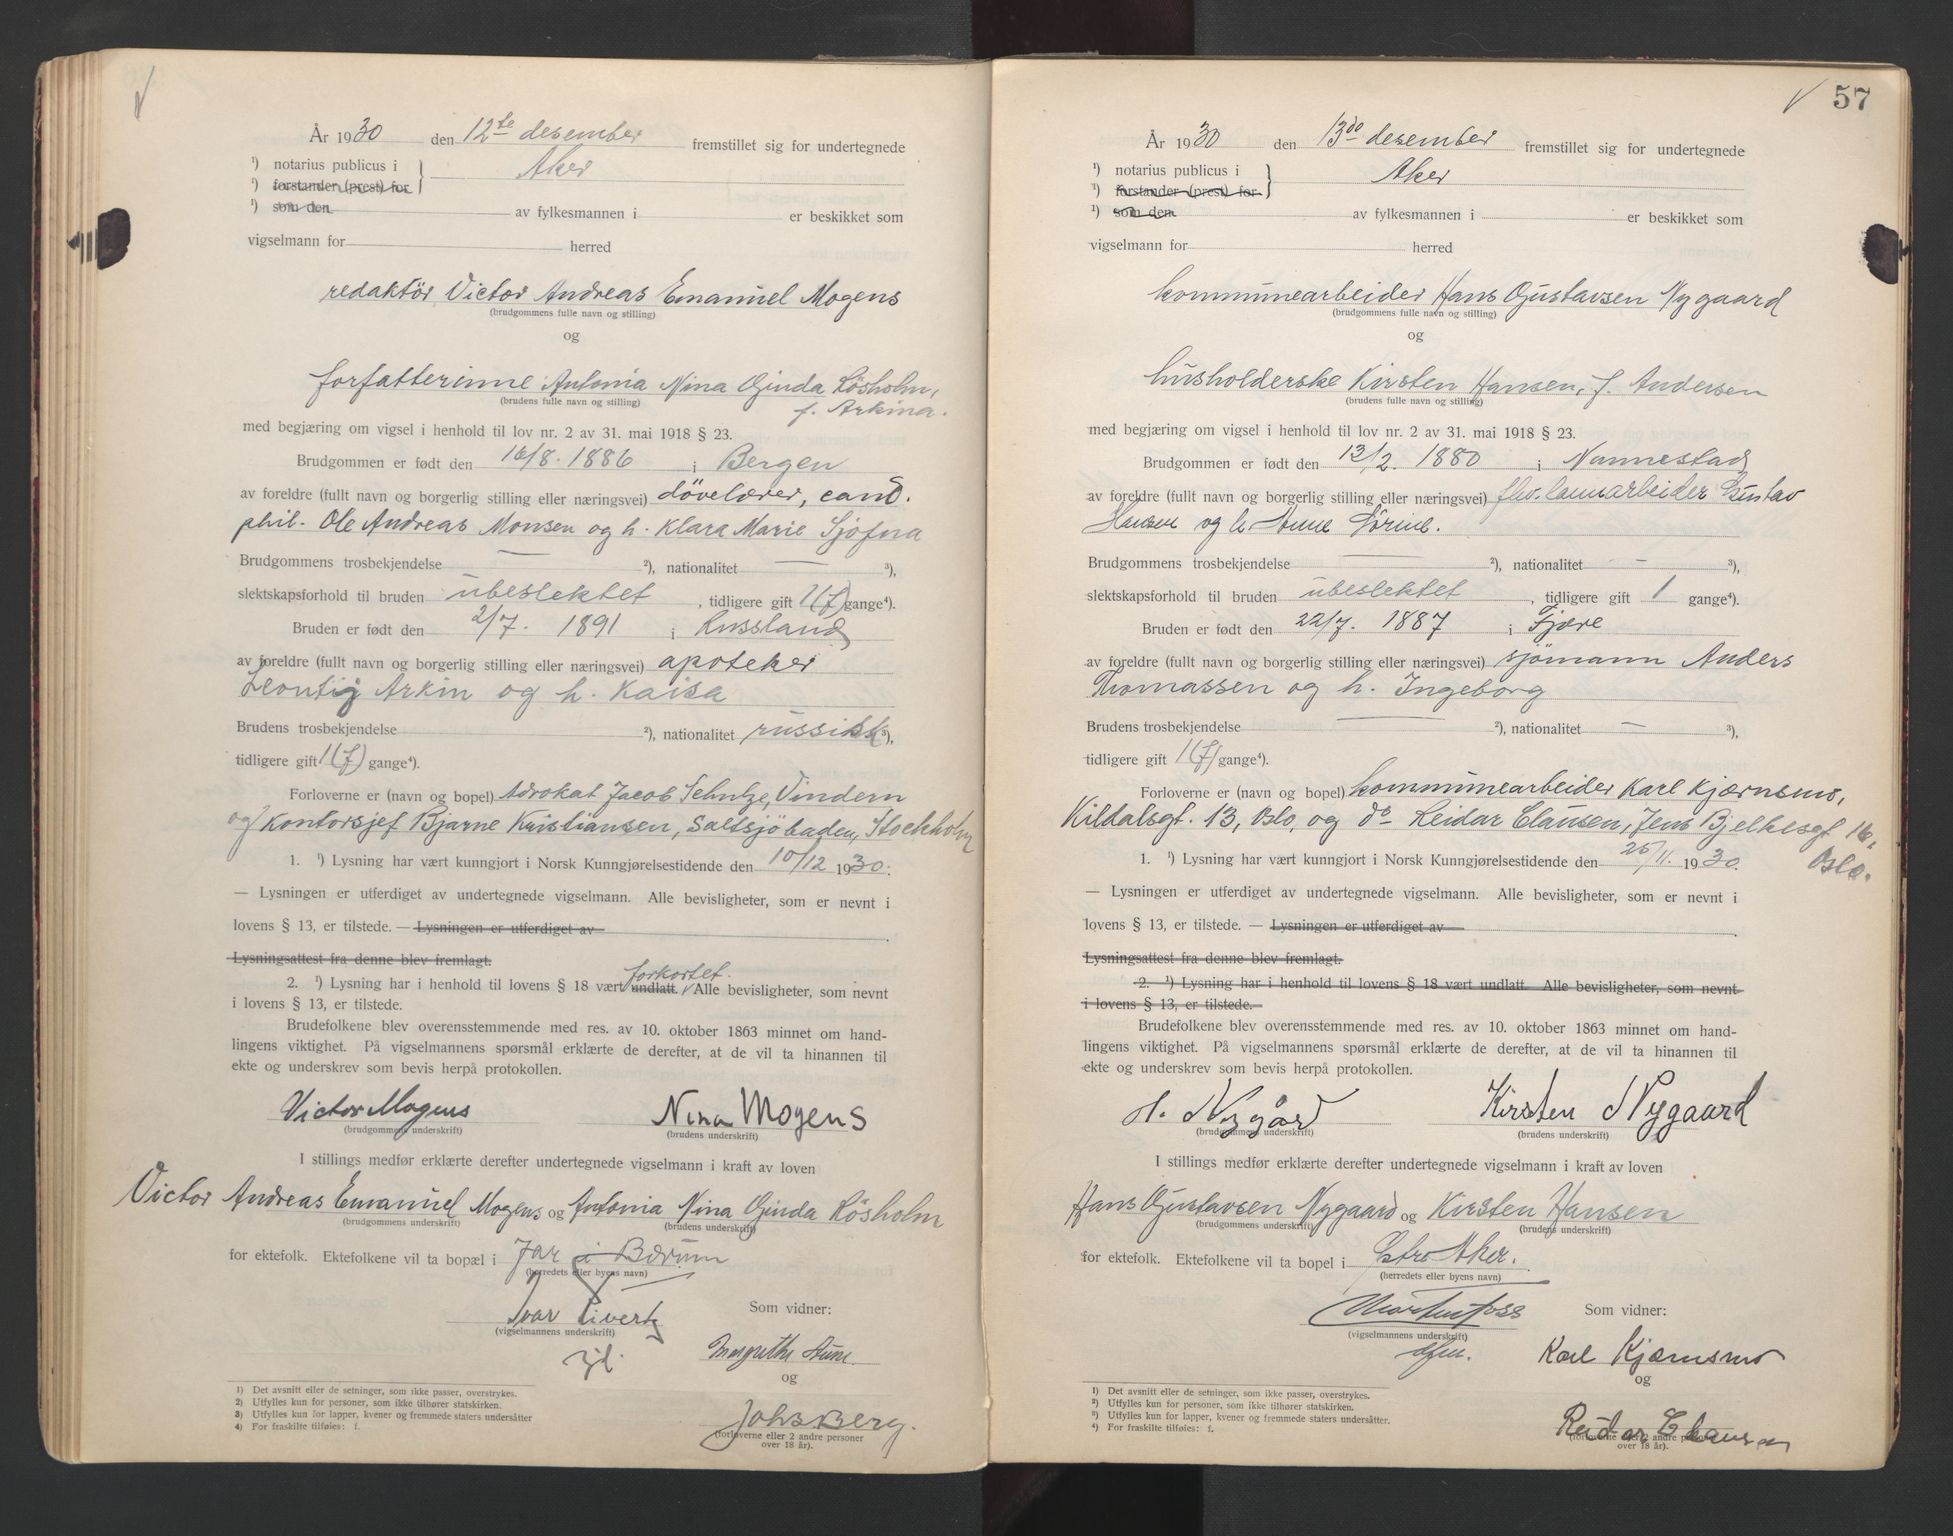 År 1930 den 12te desember fremstillet sig for undertegnede
¹) notarius publicus i } Aker
¹) forstander (prest) for
¹) som den av fylkesmannen i er beskikket som
vigselmann for herred
redaktör Victor Andreas Emanuel Mogens
(brudgommens fulle navn og stilling)
og
forfatterinne Antonia Nina Ginda Lösholm,
(brudens fulle navn og stilling)
f. Arkina.
med begjæring om vigsel i henhold til lov nr. 2 av 31. mai 1918 § 23.
Brudgommen er født den 16/8. 1886 i Bergen
av foreldre (fullt navn og borgerlig stilling eller næringsvei) dövelærer, cand.
phil. Ole Andreas Monsen og h. Klara Marie Sjöfna
Brudgommens trosbekjendelse — ²), nationalitet — ³),
slektskapsforhold til bruden ubeslektet, tidligere gift 1(f) gange⁴).
Bruden er født den 2/7. 1891 i Russland
av foreldre (fullt navn og borgerlig stilling eller næringsvei) apoteker
Leontij Arkin og h. Kaisa
Brudens trosbekjendelse ²), nationalitet russisk ³),
tidligere gift 1(f) gange⁴).
Forloverne er (navn og bopel) Advokat Jacob Schulze, Vindern
og Kontorsjef Bjarne Kristiansen, Saltsjöbaden, Stockholm
1. ¹) Lysning har vært kunngjort i Norsk Kunngjørelsestidende den 10/12 1930.
— Lysningen er utferdiget av undertegnede vigselmann. Alle bevisligheter, som er nevnt i
lovens § 13, er tilstede. — Lysningen er utferdiget av
Lysningsattest fra denne blev fremlagt.
forkortet.
2. ¹) Lysning har i henhold til lovens § 18 vært undlatt. Alle bevisligheter, som nevnt
i lovens § 13, er tilstede.
Brudefolkene blev overensstemmende med res. av 10. oktober 1863 minnet om hand-
lingens viktighet. På vigselmannens spørsmål erklærte de derefter, at de vil ta hinannen til
ekte og underskrev som bevis herpå protokollen.
Victor Mogens Nina Mogens
(brudgommens underskrift) (brudens underskrift)
I stillings medfør erklærte derefter undertegnede vigselmann i kraft av loven
Victor Andreas Emanuel Mogens og Antonia Nina Ginda Lösholm
(brudgommens underskrift) (brudens underskrift)
for ektefolk. Ektefolkene vil ta bopæl i Jar i Bærum
(herredets eller byens navn)
Ivar Sivertz Som vidner:
(vigselmannens underskrift)
Margrethe Aune
og
Johs Berg.
(forloverne eller 2 andre personer
over 18 år).
¹) Det avsnitt eller de setninger, som ikke passer, overstrykes.
²) Utfylles kun for personer, som ikke tilhører statskirken.
³) Utfylles kun for lapper, kvener og fremmede staters undersåtter
⁴) For fraskilte tilføies: f.
57
År 1930 den 13de desember fremstillet sig for undertegnede
¹) notarius publicus i } Aker
¹) forstander (prest) for
¹) som den av fylkesmannen i er beskikket som
vigselmann for herred
kommunearbeider Hans Gustavsen Nygaard
(brudgommens fulle navn og stilling)
og
husholderske Kirsten Hansen, f. Andersen
(brudens fulle navn og stilling)
med begjæring om vigsel i henhold til lov nr. 2 av 31. mai 1918 § 23.
Brudgommen er født den 13/2. 1880 i Nannestad
av foreldre (fullt navn og borgerlig stilling eller næringsvei) fhv. Gustav
Hansen og h. Anne Sörine.
Brudgommens trosbekjendelse — ²), nationalitet — ³),
slektskapsforhold til bruden ubeslektet, tidligere gift 1 gange⁴).
Bruden er født den 22/7. 1887 i Fjære
av foreldre (fullt navn og borgerlig stilling eller næringsvei) sjömann Anders
Thomassen og h. Ingeborg
Brudens trosbekjendelse — ²), nationalitet — ³),
tidligere gift 1(f) gange⁴).
Forloverne er (navn og bopel) kommunearbeider Karl Kjærnsmo,
Kildalsgt. 13, Oslo, og do Reidar Clausen, Jens Bjelkesgt 16,
Oslo.
1. ¹) Lysning har vært kunngjort i Norsk Kunngjørelsestidende den 25/11. 1930.
— Lysningen er utferdiget av undertegnede vigselmann. Alle bevisligheter, som er nevnt i
lovens § 13, er tilstede. — Lysningen er utferdiget av
Lysningsattest fra denne blev fremlagt.
2. ¹) Lysning har i henhold til lovens § 18 vært undlatt. Alle bevisligheter, som nevnt
i lovens § 13, er tilstede.
Brudefolkene blev overensstemmende med res. av 10. oktober 1863 minnet om hand-
lingens viktighet. På vigselmannens spørsmål erklærte de derefter, at de vil ta hinannen til
ekte og underskrev som bevis herpå protokollen.
H. Nygård Kirsten Nygaard
(brudgommens underskrift) (brudens underskrift)
I stillings medfør erklærte derefter undertegnede vigselmann i kraft av loven
Hans Gustavsen Nygaard og Kirsten Hansen
(brudgommens underskrift) (brudens underskrift)
for ektefolk. Ektefolkene vil ta bopel i Östre Aker.
(herredets eller byens navn)
Som vidner:
(vigselmannens underskrift)
Karl Kjærnsmo
og
Reidar Clausen
(forloverne eller 2 andre personer
over 18 år).
¹) Det avsnitt eller de setninger, som ikke passer, overstrykes.
²) Utfylles kun for personer, som ikke tilhører statskirken.
³) Utfylles kun for lapper, kvener og fremmede staters undersåtter.
⁴) For fraskilte tilføies: f.